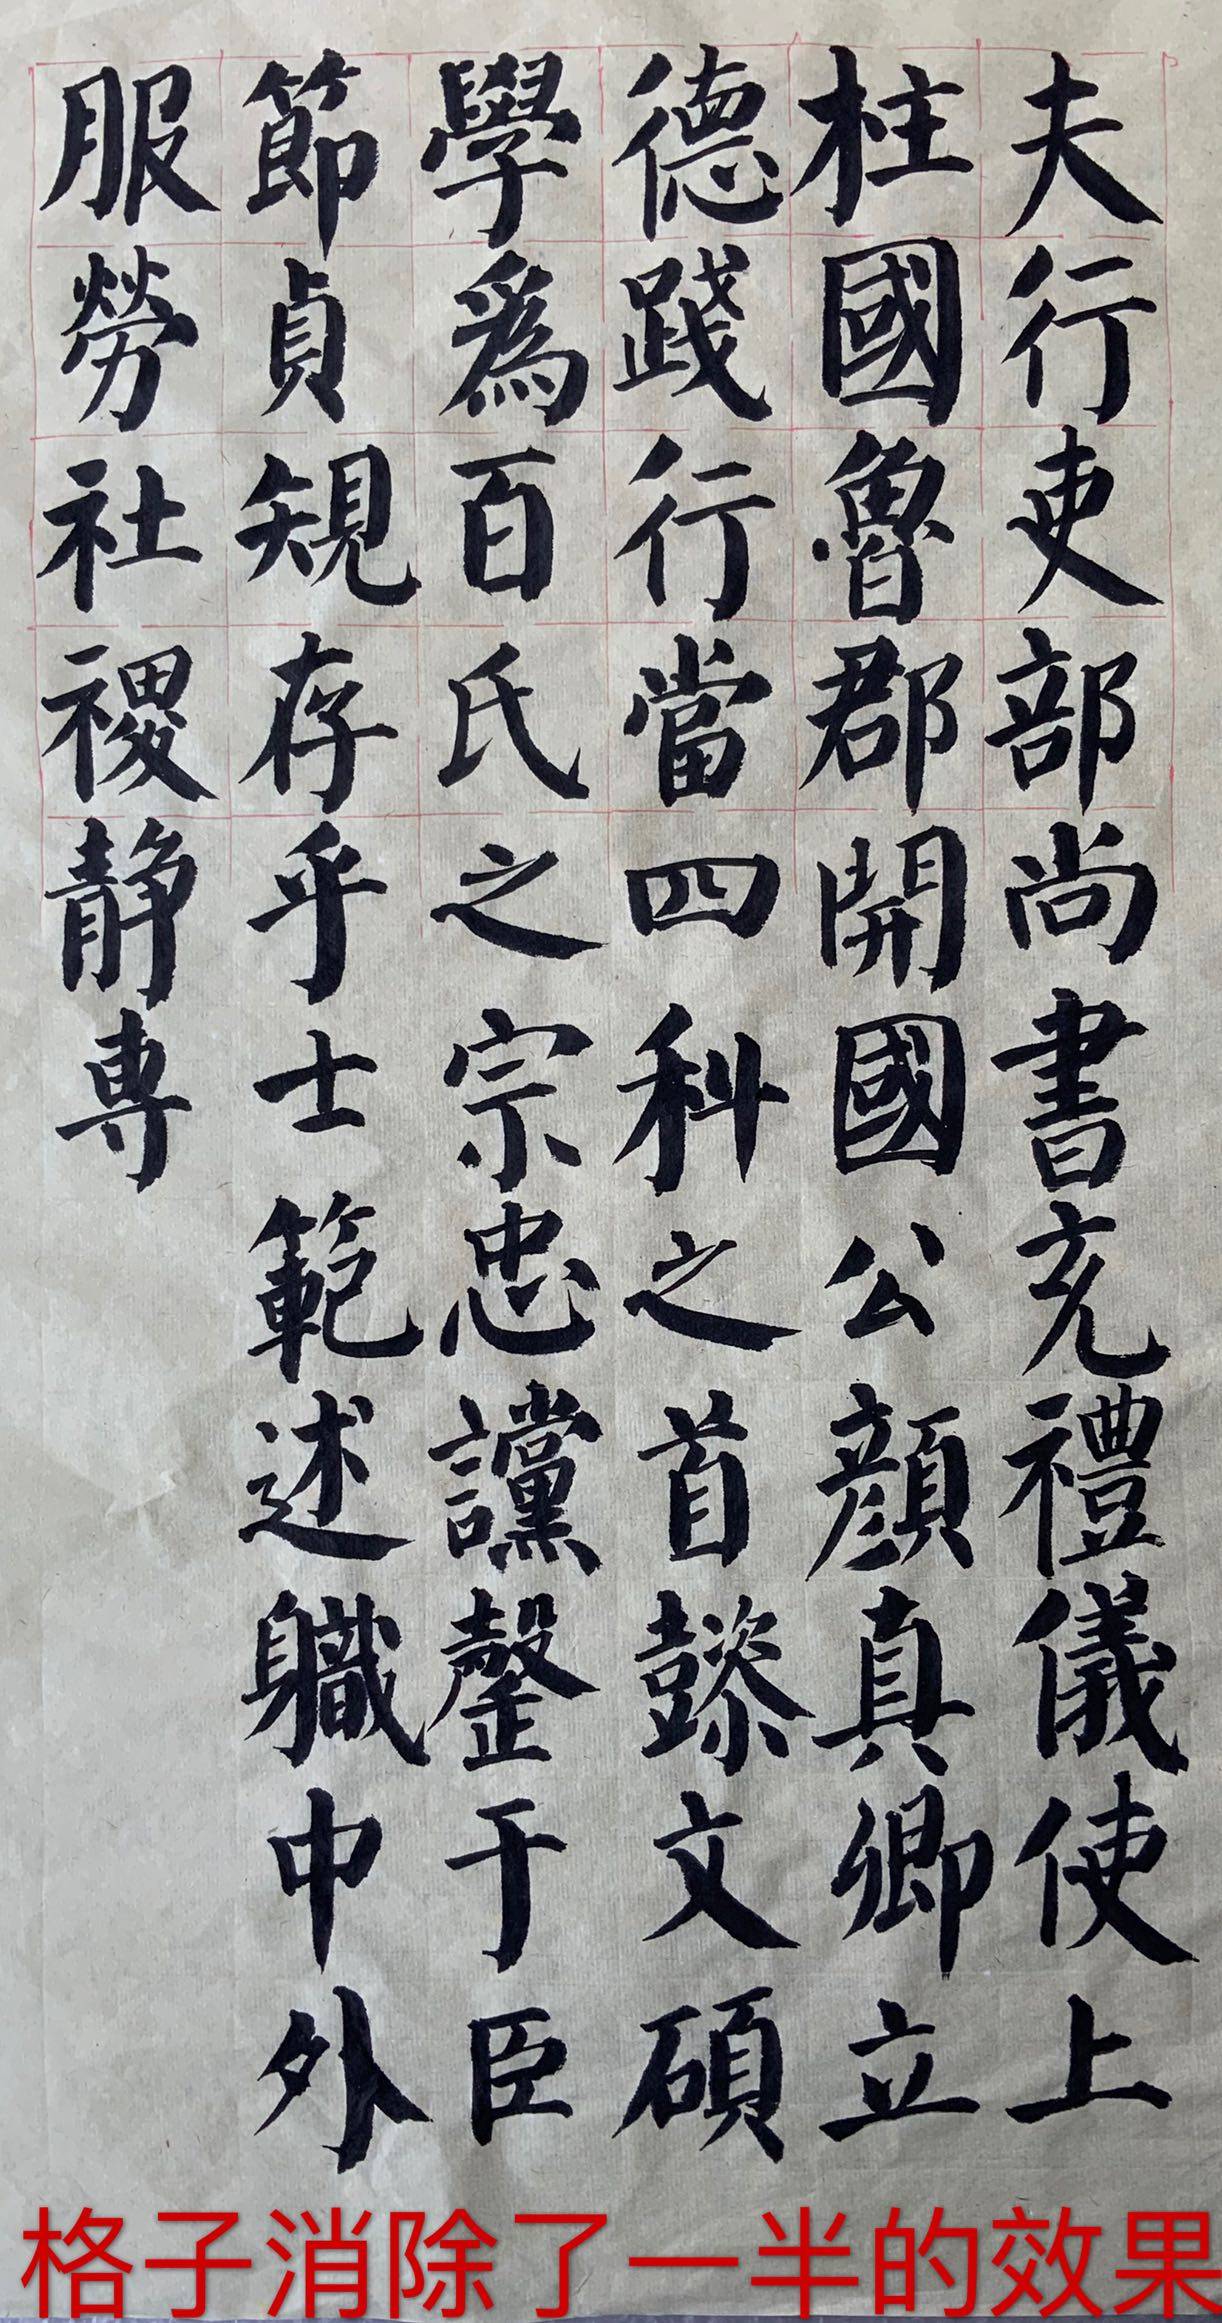 夫行吏部尚書充禮儀使上
柱國魯郡開國公顔真卿立
德踐行當四科之首懿文碩
學爲百氏之宗忠讜罄于臣
節貞規存乎士範述職中外
服勞社稷静專
格子消除了一半的效果